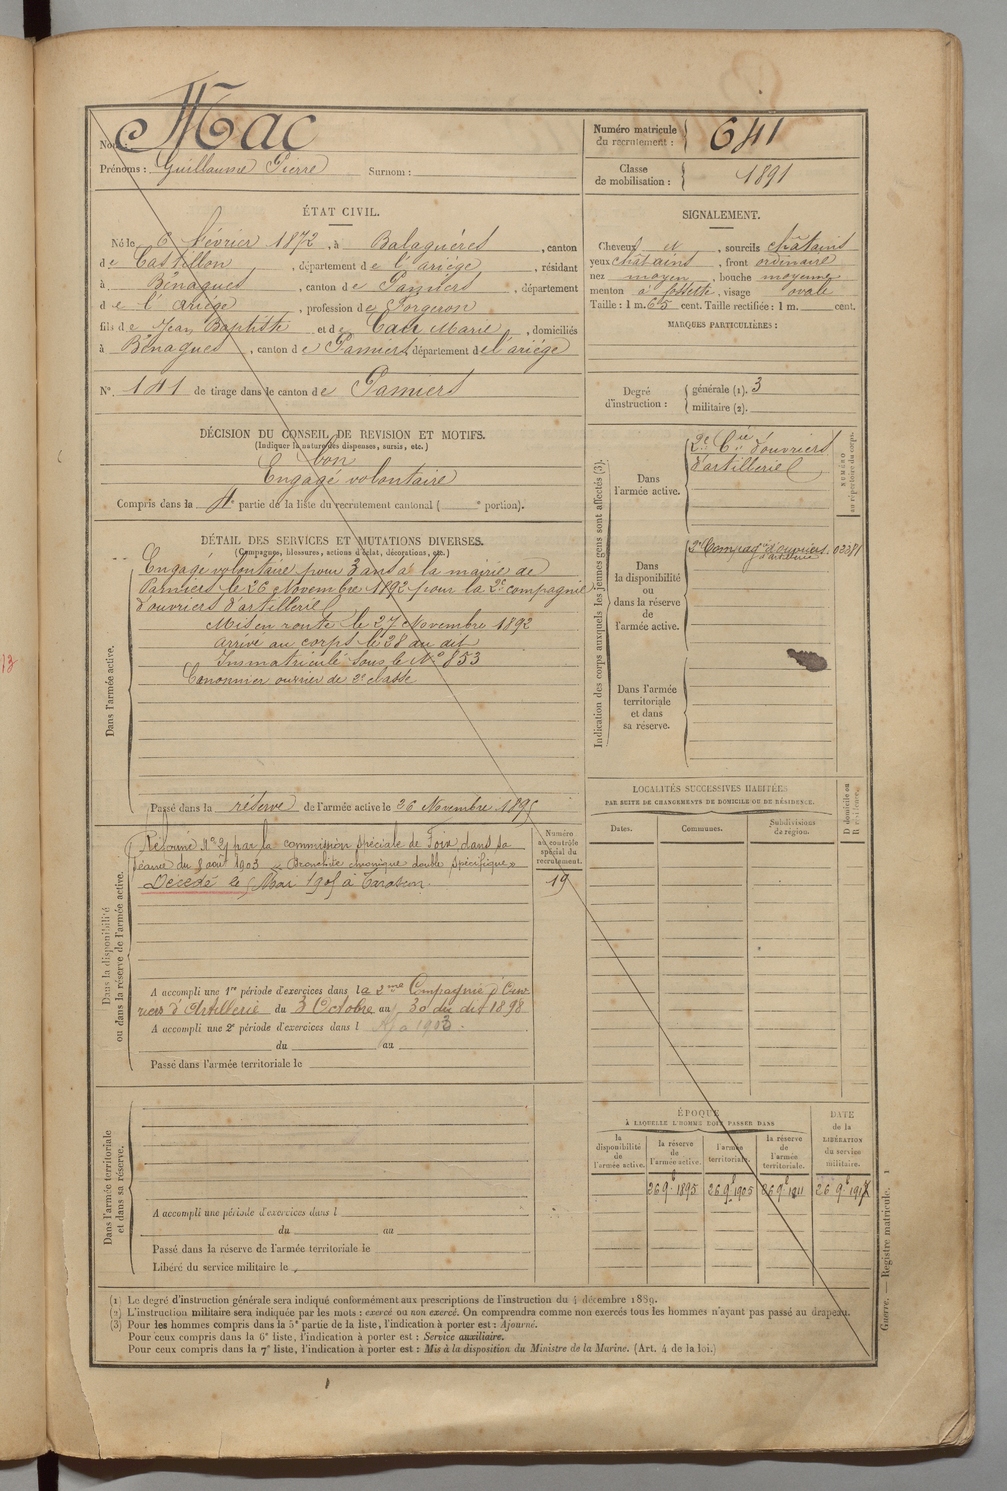 Nom : Mac
Prénoms : Guillaume Pierre Surnom :
Numéro matricule du recrutement : 641
Classe de mobilisation : 1891
ÉTAT CIVIL.
Né le 6 février 1872, à Balaguères, canton
de Castillon, département de l'ariège, résidant
à Bénagues, canton de Pamiers, département
de l'ariège, profession de Forgeron
fils de Jean Baptiste et de Marie, domiciliés
à Bénagues, canton de Pamiers département de l'ariège
N° 141 de tirage dans le canton de Pamiers
SIGNALEMENT.
Cheveux et, sourcils châtains
yeux châtains, front ordinaire
nez moyen, bouche moyenne
menton à fossette, visage ovale
Taille : 1 m. 65 cent. Taille rectifiée : 1 m. cent.
MARQUES PARTICULIÈRES :
Degré d'instruction : générale (1). 3
militaire (2).
DÉCISION DU CONSEIL DE REVISION ET MOTIFS.
(Indiquer la nature des dispenses, sursis, etc.)
bon
Engagé volontaire
Compris dans la 4e partie de la liste du recrutement cantonal ( e portion).
DÉTAIL DES SERVICES ET MUTATIONS DIVERSES.
(Campagnes, blessures, actions d'éclat, décorations, etc.)
Dans l'armée active.
Engagé volontaire pour 3 ans à la mairie de
Pamiers le 26 Novembre 1892 pour la 2e compagnie
d'ouvriers d'artillerie
Mis en route le 27 Novembre 1892
arrivé au corps le 28 au dit
Immatriculé sous le N° 853
Canonnier ouvrier de 2e classe
Passé dans la réserve de l'armée active le 26 Novembre 1895
Indication des corps auxquels les jeunes gens sont affectés (3).
NUMÉRO au répertoire du corps.
Dans l'armée active.
2e Cie d'ouvriers
d'artillerie
Dans la disponibilité ou dans la réserve de l'armée active.
2e Compagie d'ouvriers
d'artillerie
Dans l'armée territoriale et dans sa réserve.
LOCALITÉS SUCCESSIVES HABITÉES
PAR SUITE DE CHANGEMENTS DE DOMICILE OU DE RÉSIDENCE.
Dates. Communes. Subdivisions de région. D domicile ou R résidence.
Dans la disponibilité ou dans la réserve de l'armée active.
Numéro au contrôle spécial du recrutement.
19
Réformé N° 2 par la commission spéciale de Foix dans sa
séance du 8 août 1903 « Bronchite chronique double spécifique »
Décédé le 5 Mai 1905 à Tarascon
A accompli une 1re période d'exercices dans la 2me Compagnie d'Ouv-
riers d'Artillerie du 3 Octobre au 30 du dit 1898
A accompli une 2e période d'exercices dans l a 1903.
du au
Passé dans l'armée territoriale le
Dans l'armée territoriale et dans sa réserve.
A accompli une période d'exercices dans l
du au
Passé dans la réserve de l'armée territoriale le
Libéré du service militaire le
ÉPOQUE
À LAQUELLE L'HOMME DOIT PASSER DANS
DATE de la LIBÉRATION du service militaire.
la disponibilité de l'armée active. la réserve de l'armée active. l'armée territoriale. la réserve de l'armée territoriale.
26 9e 1895 26 9e 1905 26 9e 1911 26 9e 1917
(1) Le degré d'instruction générale sera indiqué conformément aux prescriptions de l'instruction du 4 décembre 1889.
(2) L'instruction militaire sera indiquée par les mots : exercé ou non exercé. On comprendra comme non exercés tous les hommes n'ayant pas passé au drapeau.
(3) Pour les hommes compris dans la 5e partie de la liste, l'indication à porter est : Ajourné.
Pour ceux compris dans la 6e liste, l'indication à porter est : Service auxiliaire.
Pour ceux compris dans la 7e liste, l'indication à porter est : Mis à la disposition du Ministre de la Marine. (Art. 4 de la loi.)
Guerre. — Registre matricule. 1